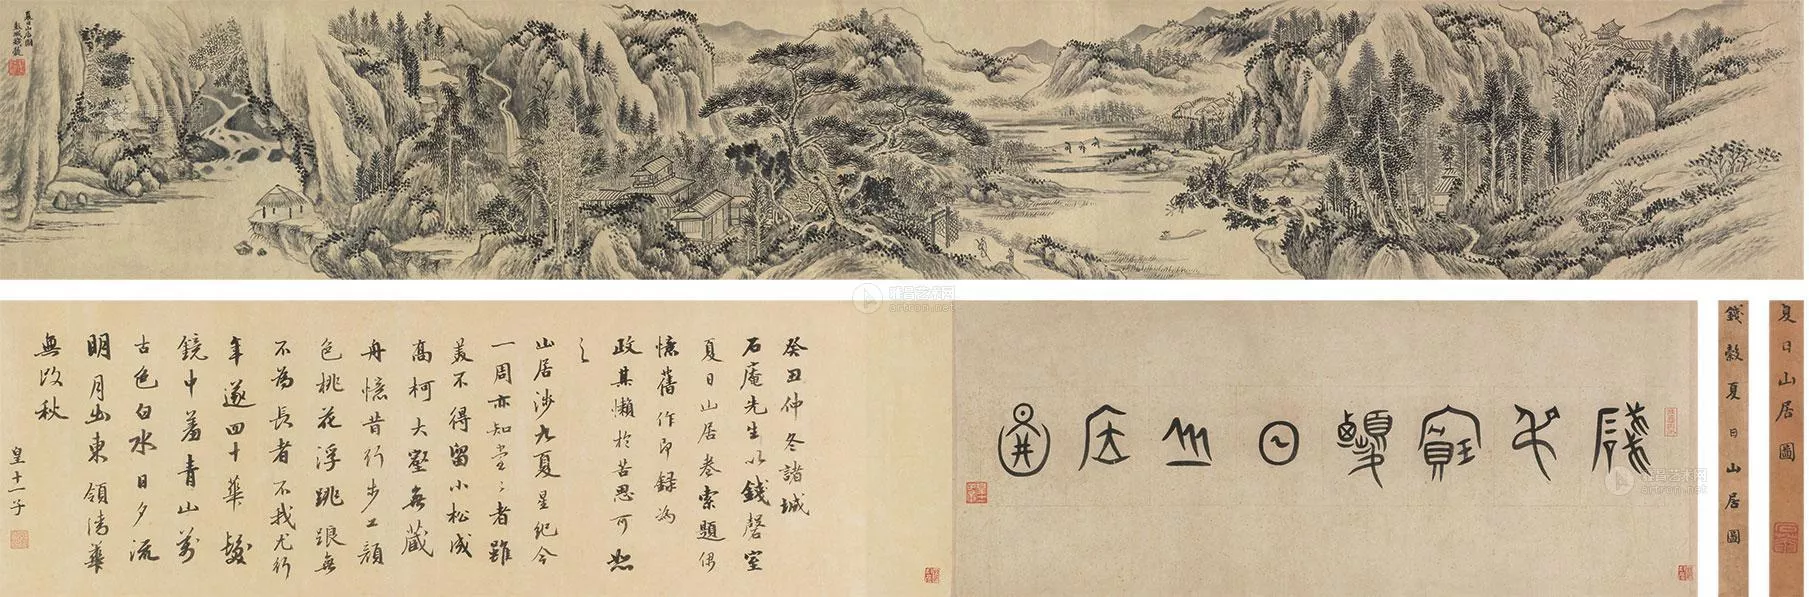 夏日山居圖
彭城錢穀
夏日山居圖
錢穀夏日山居圖
錢叔寶
夏日山居圖
癸丑仲冬諸城
石庵先生以錢磬室
夏日山居卷索題偶
憶舊作即錄為
政其懶於苦思可恕
之
山居涉九夏星紀今
一周亦知堂〻者雖
美不得留小松成
高柯大壑無藏
舟憶昔行步工顏
色桃花浮跳踉每
不為長者不我尤行
年遂四十華髮
鏡中羞青山萬
古色白水日夕流
明月出東領清華
無改秋
皇十一子
雅昌艺术网
artron.net